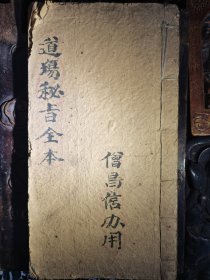 道場秘旨全本
僧昌信办用